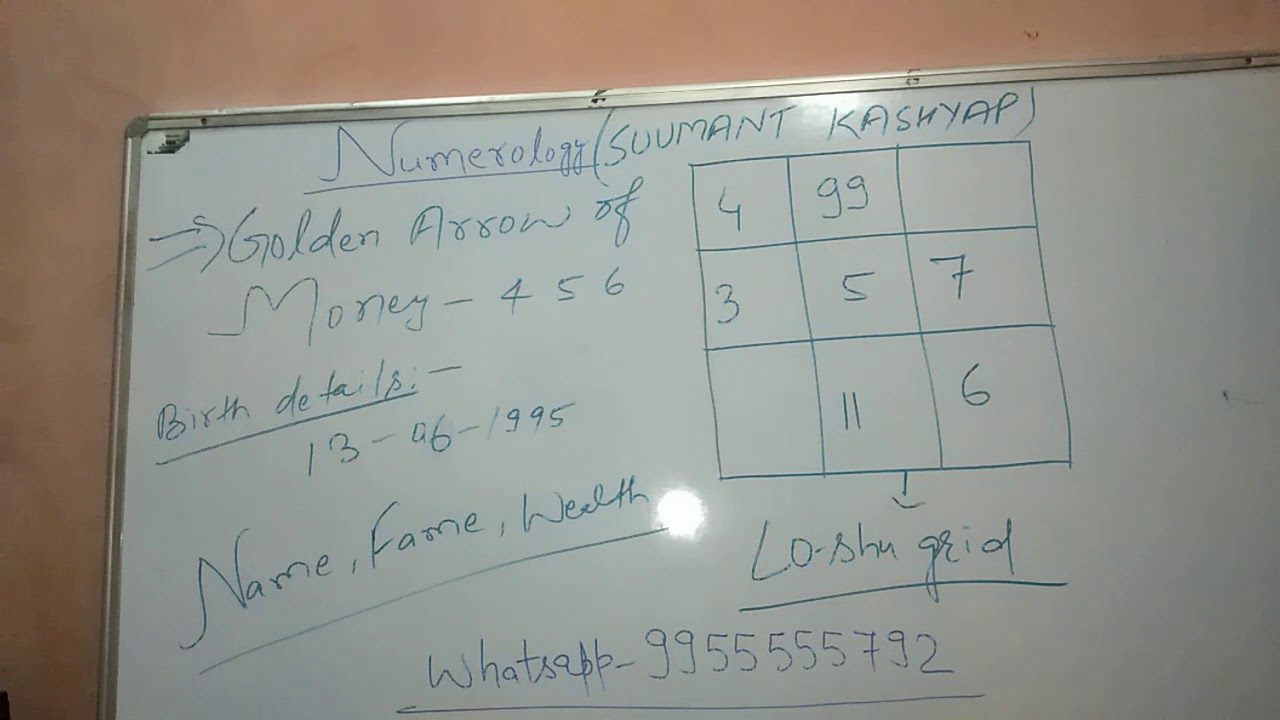 Numerology (SUUMANT KASHYAP)
⇒ Golden Arrow of
Money - 4 5 6
Birth details:-
13-06-1995
Name, Fame, Wealth
4 99
3 5 7
11 6
Lo-shu grid
Whatsapp-9955555792